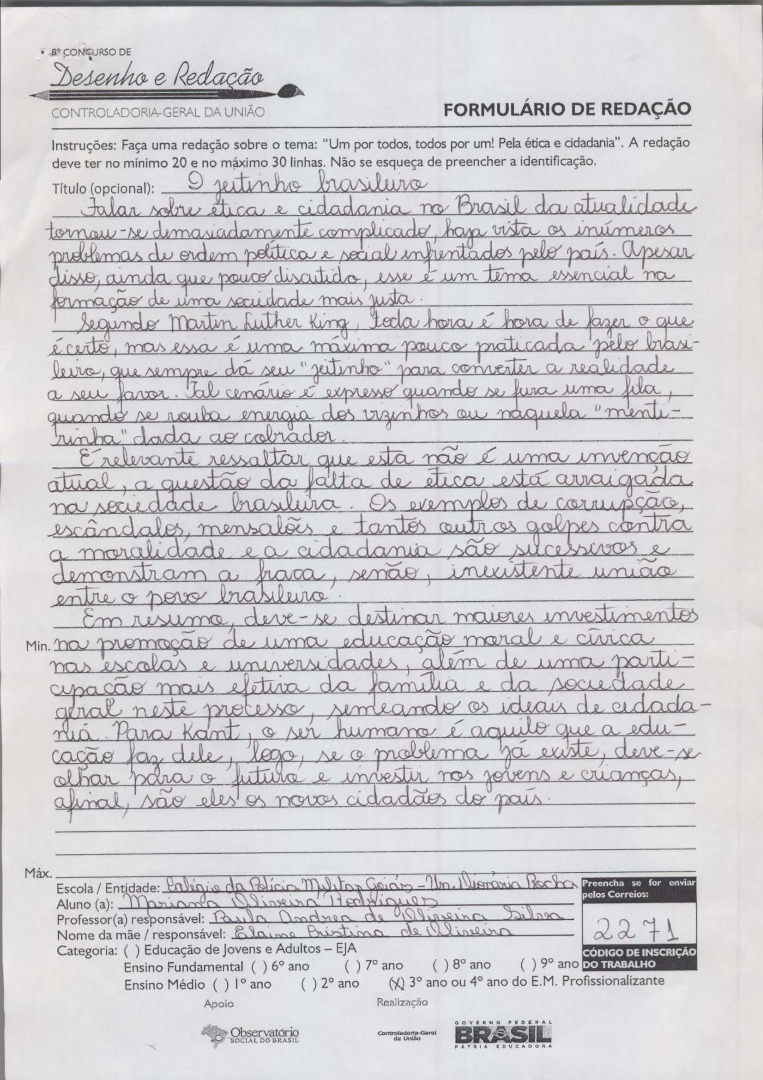 8º CONCURSO DE
Desenho e Redação
CONTROLADORIA-GERAL DA UNIÃO
FORMULÁRIO DE REDAÇÃO
Instruções: Faça uma redação sobre o tema: "Um por todos, todos por um! Pela ética e cidadania". A redação
deve ter no mínimo 20 e no máximo 30 linhas. Não se esqueça de preencher a identificação.
Título (opcional): O jeitinho brasileiro
Falar sobre ética e cidadania no Brasil da atualidade
tornou-se demasiadamente complicado, haja vista os inúmeros
problemas de ordem política e social enfrentados pelo país. Apesar
disso, ainda que pouco discutido, esse é um tema essencial na
formação de uma sociedade mais justa.
Segundo Martin Luther King, toda hora é hora de fazer o que
é certo, mas essa é uma máxima pouco praticada pelo brasi-
leiro, que sempre dá seu "jeitinho" para converter a realidade
a seu favor. Tal cenário é expresso quando se fura uma fila,
quando se rouba energia dos vizinhos ou naquela "menti-
rinha" dada ao cobrador.
É relevante ressaltar que esta não é uma invenção
atual, a questão da falta de ética está arraigada
na sociedade brasileira. Os exemplos de corrupção,
escândalos, mensalões e tantos outros golpes contra
a moralidade e a cidadania são sucessivos e
demonstram a fraca, senão, inexistente união
entre o povo brasileiro.
Em resumo, deve-se destinar maiores investimentos
Min. na promoção de uma educação moral e cívica
nas escolas e universidades, além de uma parti-
cipação mais efetiva da família e da sociedade
geral neste processo, semeando os ideais de cidada-
nia. Para Kant, o ser humano é aquilo que a edu-
cação faz dele, logo, se o problema já existe, deve-se
olhar para o futuro e investir nos jovens e crianças,
afinal, são eles os novos cidadãos do país.
Máx.
Escola / Entidade: Colégio da Polícia Militar Goiás - Un. Rocha
Aluno (a): Mariana Oliveira Rodrigues
Professor(a) responsável: Paula Andrea de Oliveira Silva
Nome da mãe / responsável: Elaine Cristina de Oliveira
Preencha se for enviar
pelos Correios:
2271
CÓDIGO DE INSCRIÇÃO
DO TRABALHO
Categoria: ( ) Educação de Jovens e Adultos – EJA
Ensino Fundamental ( ) 6º ano ( ) 7º ano ( ) 8º ano ( ) 9º ano
Ensino Médio ( ) 1º ano ( ) 2º ano (X) 3º ano ou 4º ano do E.M. Profissionalizante
Apoio
Realização
Observatório
SOCIAL DO BRASIL
Controladoria-Geral
da União
GOVERNO FEDERAL
BRASIL
PÁTRIA EDUCADORA